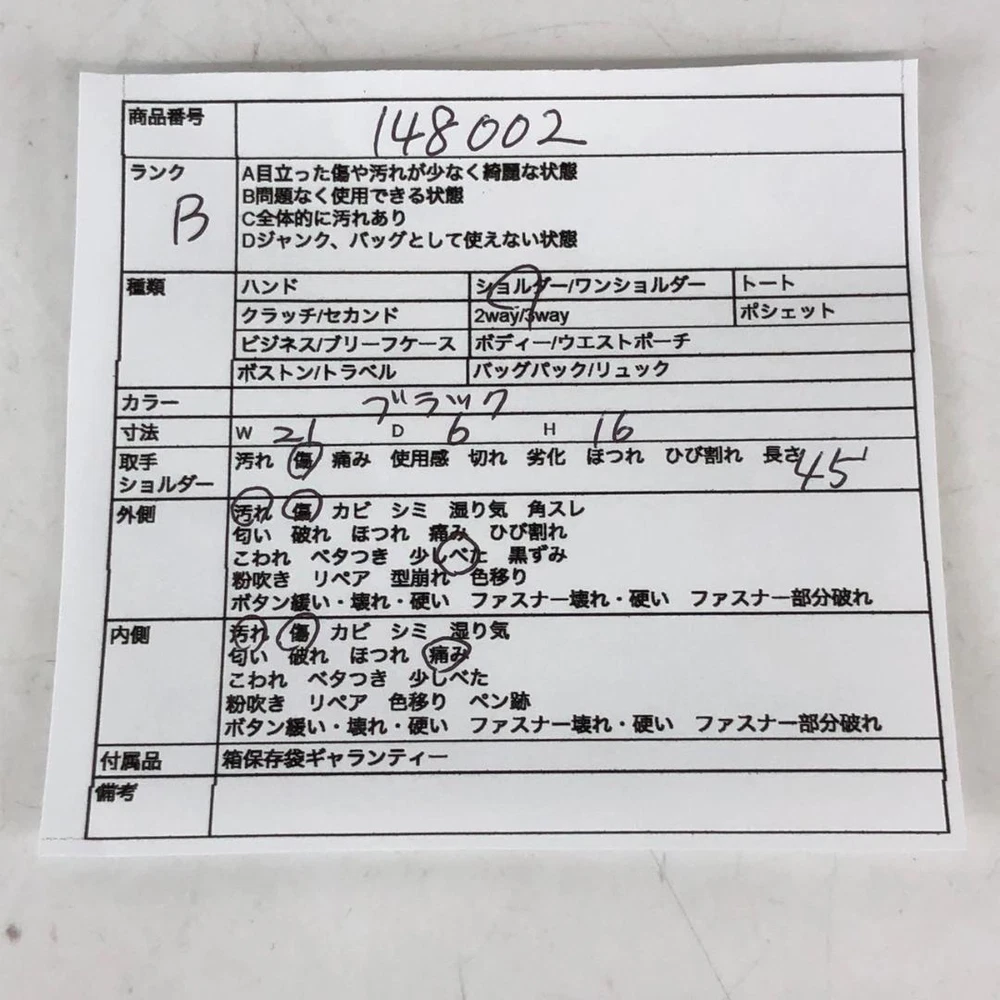 商品番号 148002
ランク B
A目立った傷や汚れが少なく綺麗な状態
B問題なく使用できる状態
C全体的に汚れあり
Dジャンク、バッグとして使えない状態
種類 ハンド ショルダー/ワンショルダー トート
クラッチ/セカンド 2way/3way ポシェット
ビジネス/ブリーフケース ボディー/ウエストポーチ
ボストン/トラベル バッグパック/リュック
カラー ブラック
寸法 W 21 D 6 H 16
取手 汚れ 傷 痛み 使用感 切れ 劣化 ほつれ ひび割れ 長さ 45
ショルダー
外側 汚れ 傷 カビ シミ 湿り気 角スレ
匂い 破れ ほつれ 痛み ひび割れ
こわれ ベタつき 少しべた 黒ずみ
粉吹き リペア 型崩れ 色移り
ボタン緩い・壊れ・硬い ファスナー壊れ・硬い ファスナー部分破れ
内側 汚れ 傷 カビ シミ 湿り気
匂い 破れ ほつれ 痛み
こわれ ベタつき 少しべた
粉吹き リペア 色移り ペン跡
ボタン緩い・壊れ・硬い ファスナー壊れ・硬い ファスナー部分破れ
付属品 箱保存袋ギャランティー
備考